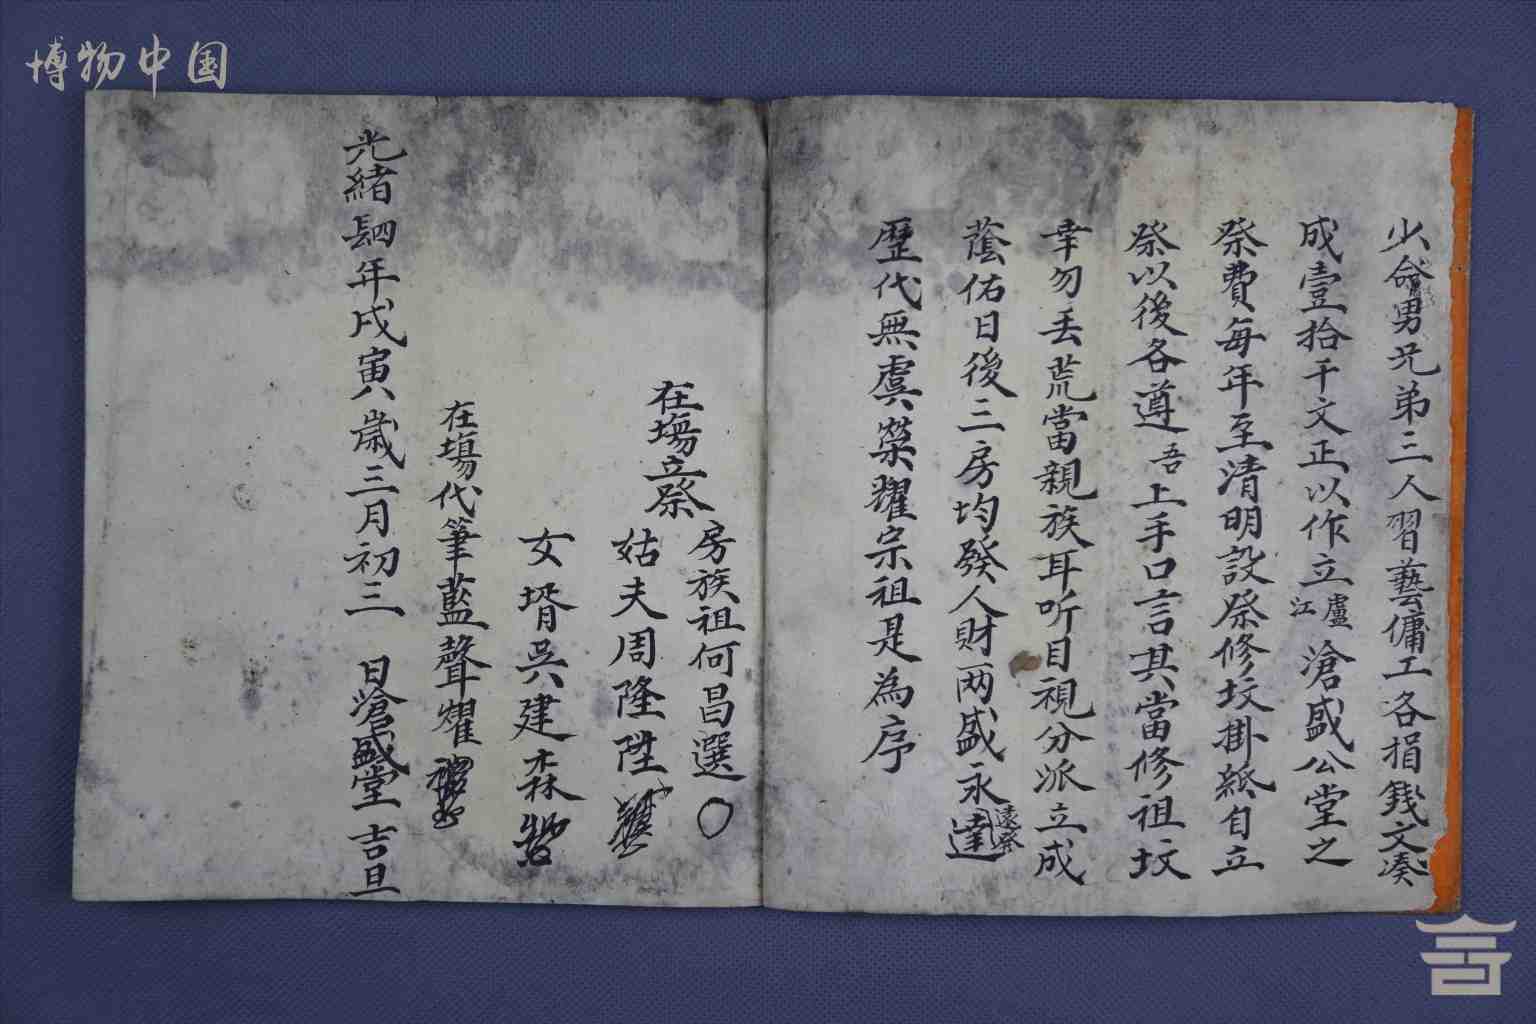 博物中国
少命男兄弟三人習藝傭工各捐錢文凑
成壹拾千文正以作立廬江滄盛公堂之
祭費每年至清明設祭修坟掛紙自立
祭以後各遵吾上手口言其當修祖坟
幸勿丢荒當親族耳听目視分派立成
蔭佑日後三房均發人財两盛永遠祭達
歷代無虞榮耀宗祖是為序
在塲立祭
房族祖何昌選〇
姑夫周隆陞
女壻吳建森
在塲代筆藍聲耀
光緒肆年戊寅歲三月初三日滄盛堂吉旦